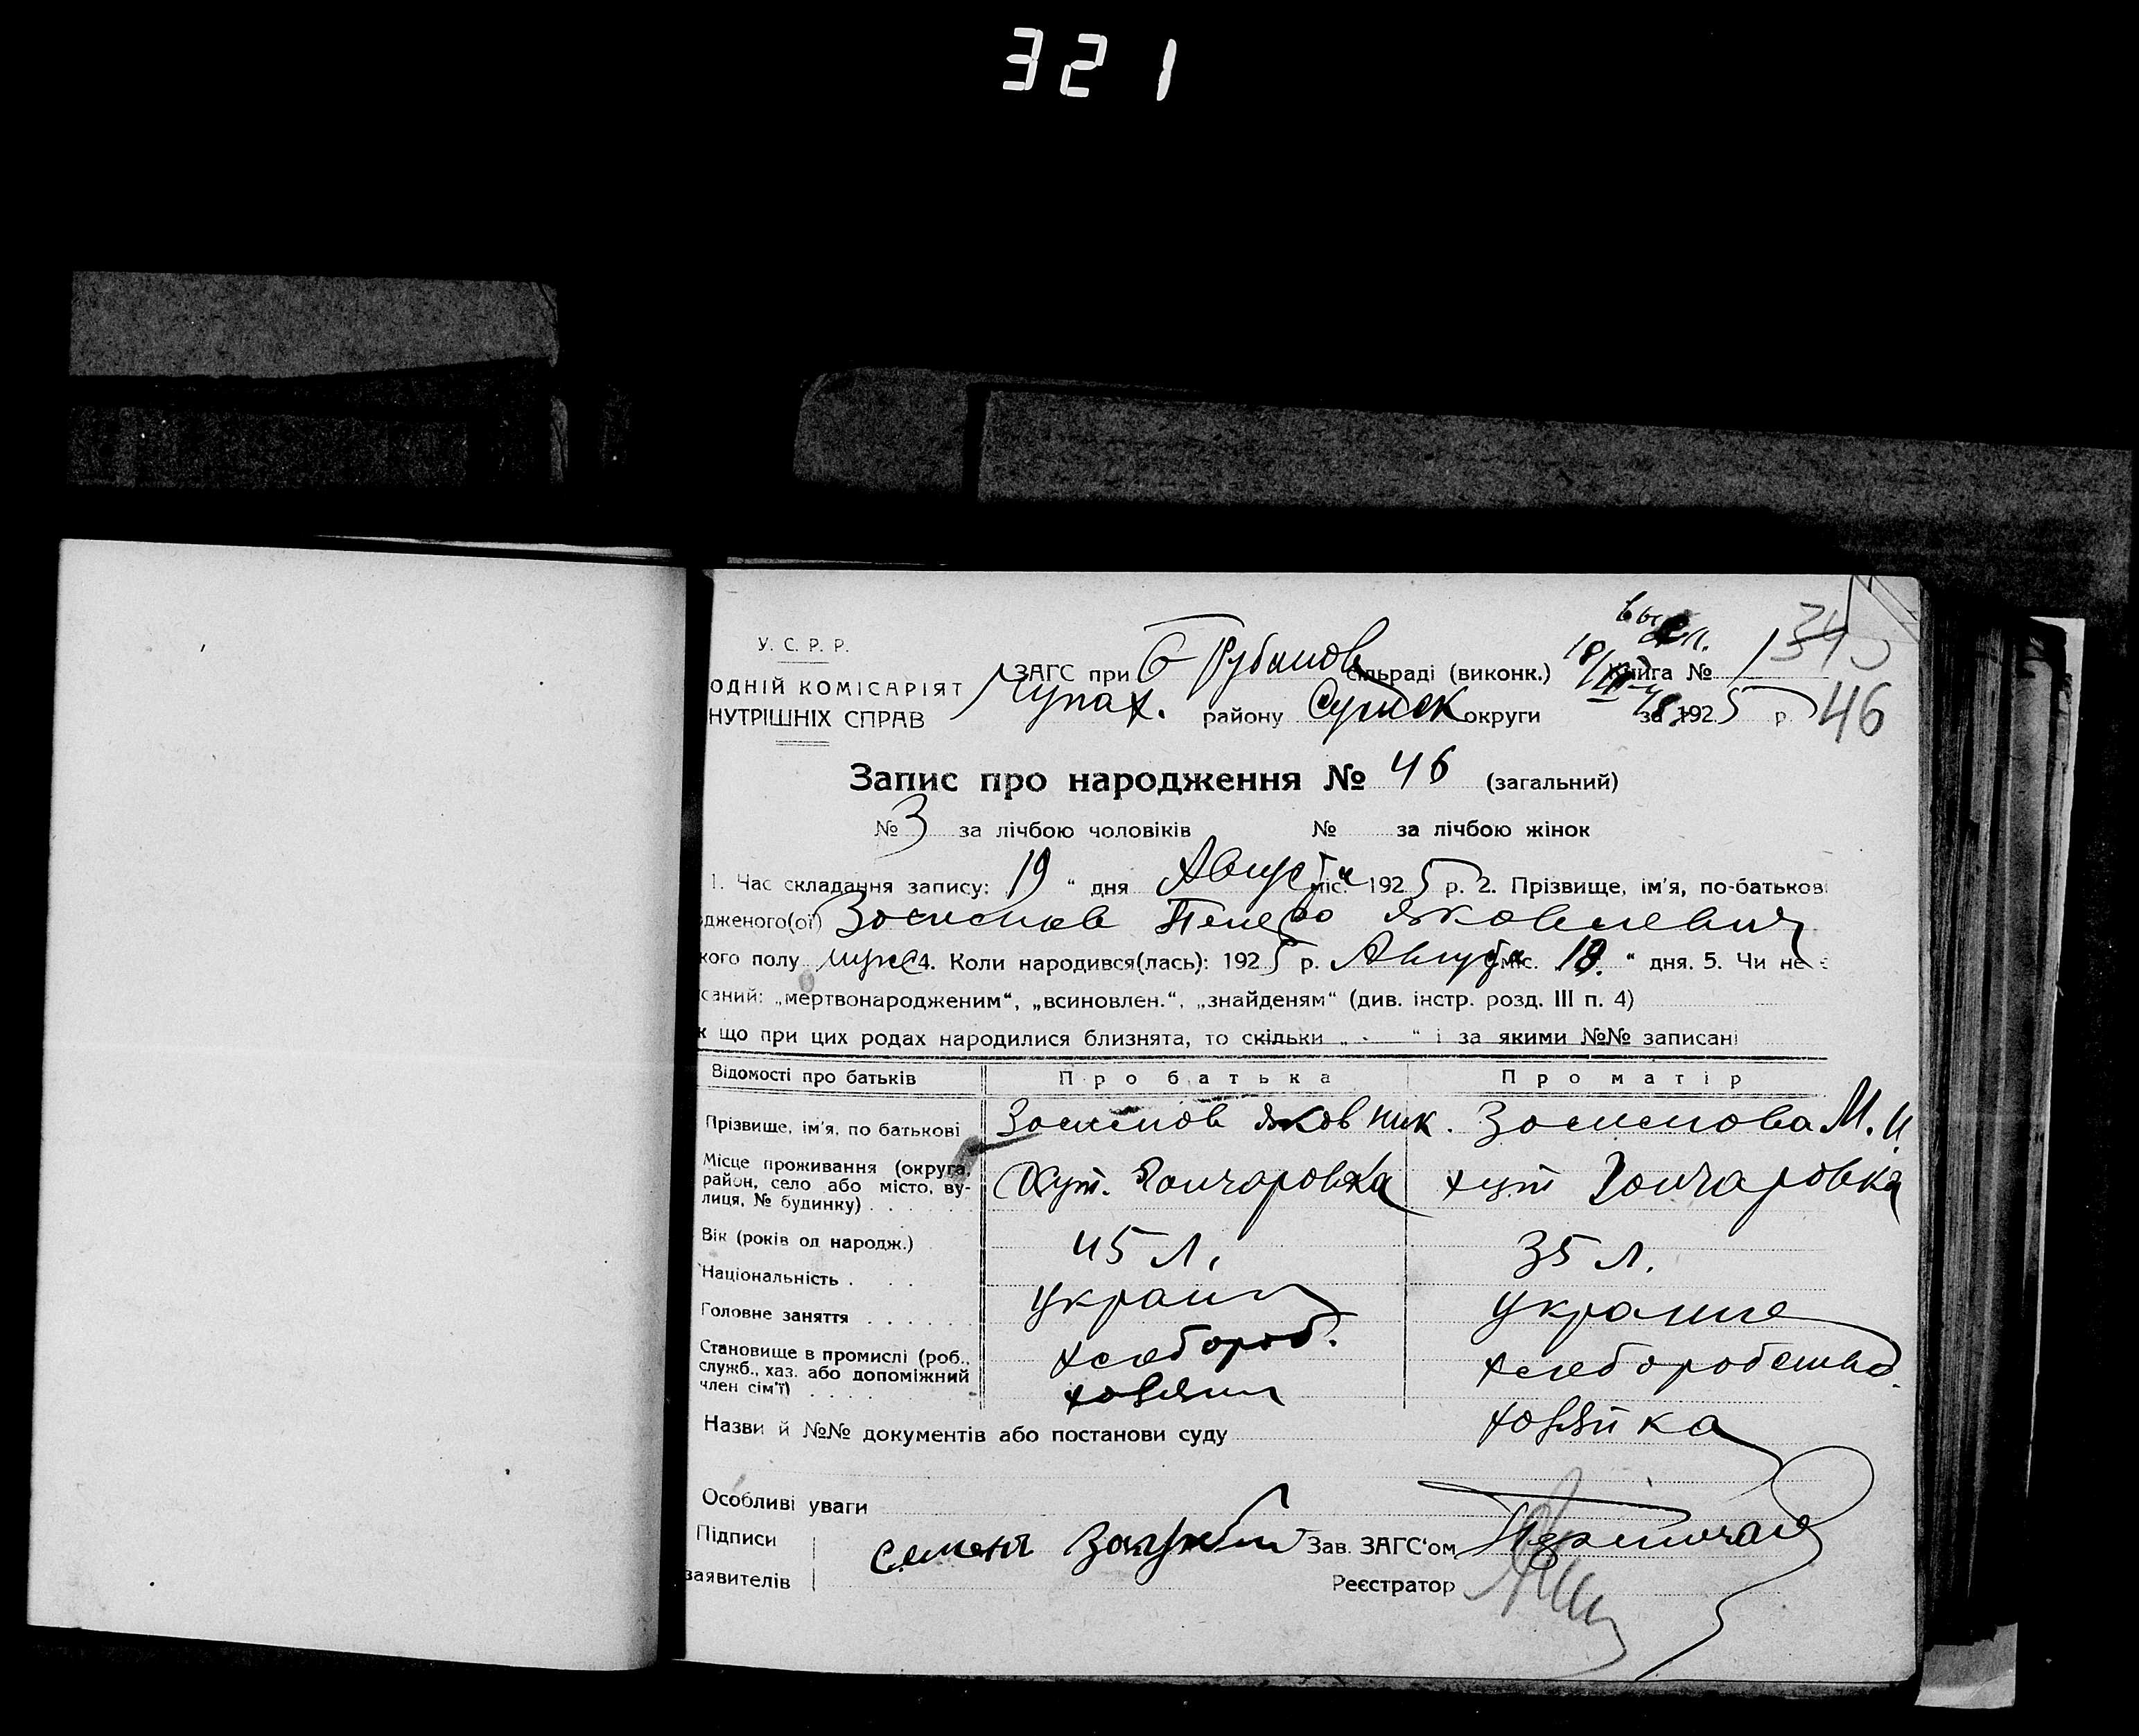 321
У. С. Р. Р.
ОДНІЙ КОМІСАРІЯТ
НУТРІШНІХ СПРАВ
ЗАГС при Б Рубанов сільраді (виконк.)
Чупах. району Сумск округи
Книга № 1
за 1925 р.
345
46
Запис про народження № 46 (загальний)
№ 3 за лічбою чоловіків № за лічбою жінок
1. Час складання запису: 19 " дня Августа міс. 1925 р. 2. Прізвище, ім'я, по-батькові
дженого(ої) Яковлевич
кого полу муж 4. Коли народився(лась): 1925 р. Августа міс. 18. " дня. 5. Чи не є
саний: „мертвонародженим“, „всиновлен.“, „знайденям“ (див. інстр. розд. III п. 4)
к що при цих родах народилися близнята, то скільки „ - “ і за якими №№ записані
Відомості про батьків Про батька Про матір
Прізвище, ім'я, по батькові Яков Ник. М. И.
Місце проживання (округа, район, село або місто, ву-
лиця, № будинку) Хут. Гончаровка хут Гончаровка
Вік (років од народж.) 45 л. 35 л.
Національність украин украине
Головне заняття хлебороб.
Становище в промислі (роб., служб., хаз. або допоміжний
член сім'ї) хозяин хозяйка
Назви й №№ документів або постанови суду
Особливі уваги
Підписи
заявителів
Семен Зав. ЗАГС'ом
Реєстратор